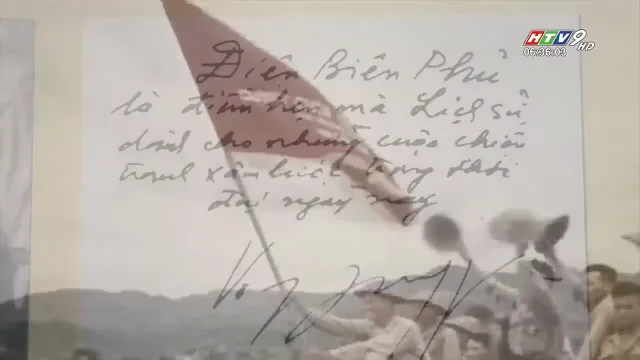 HTV9 HD
06:36:03
Điện Biên Phủ
là điểm hẹn mà Lịch sử
dành cho những cuộc chiến
tranh xâm lược trong thời
đại ngày nay